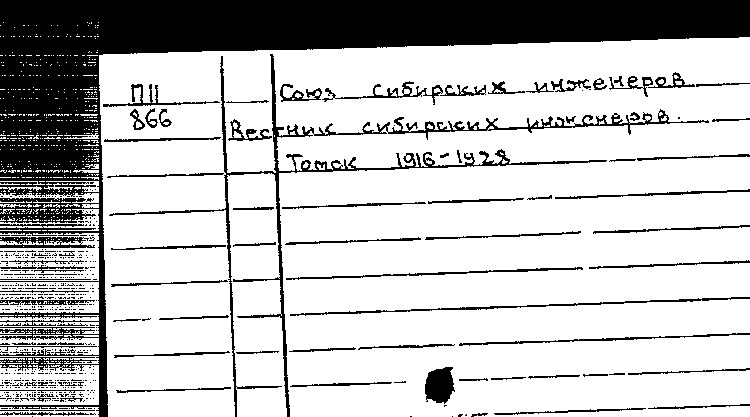 ПII
866
Союз сибирских инженеров
Вестник сибирских инженеров.
Томск 1916-1928